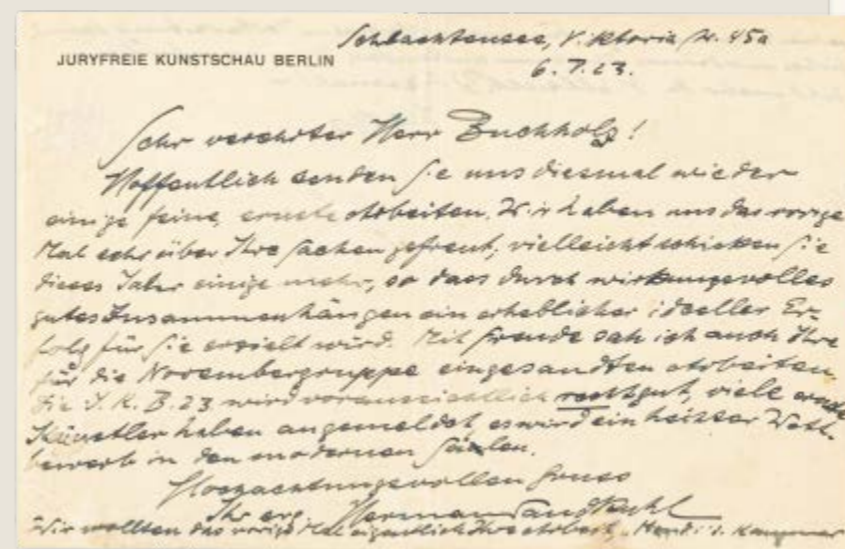 JURYFREIE KUNSTSCHAU BERLIN
Schlachtensee, Viktoria str. 45a
6. 7. 23.
Sehr verehrter Herr Buchholz!
Hoffentlich senden Sie uns diesmal wieder
einige feine, ernste Arbeiten. Wir haben uns das vorige
Mal sehr über Ihre Sachen gefreut, vielleicht schicken Sie
dieses Jahr einige mehr, so dass durch wirkungsvolles
gutes Zusammenhängen ein erheblicher ideeller Er-
folg für Sie erzielt wird. Mit Freude sah ich auch Ihre
für die Novembergruppe eingesandten Arbeiten.
Die J. K. B. 23 wird voraussichtlich recht gut, viele ernste
Künstler haben angemeldet, es wird ein heisser Wett-
bewerb in den modernen Sälen.
Hochachtungsvollen Gruss
Ihr erg. Hermann Sandkuhl
Wir wollten das vorige Mal eigentlich Ihre Arbeit